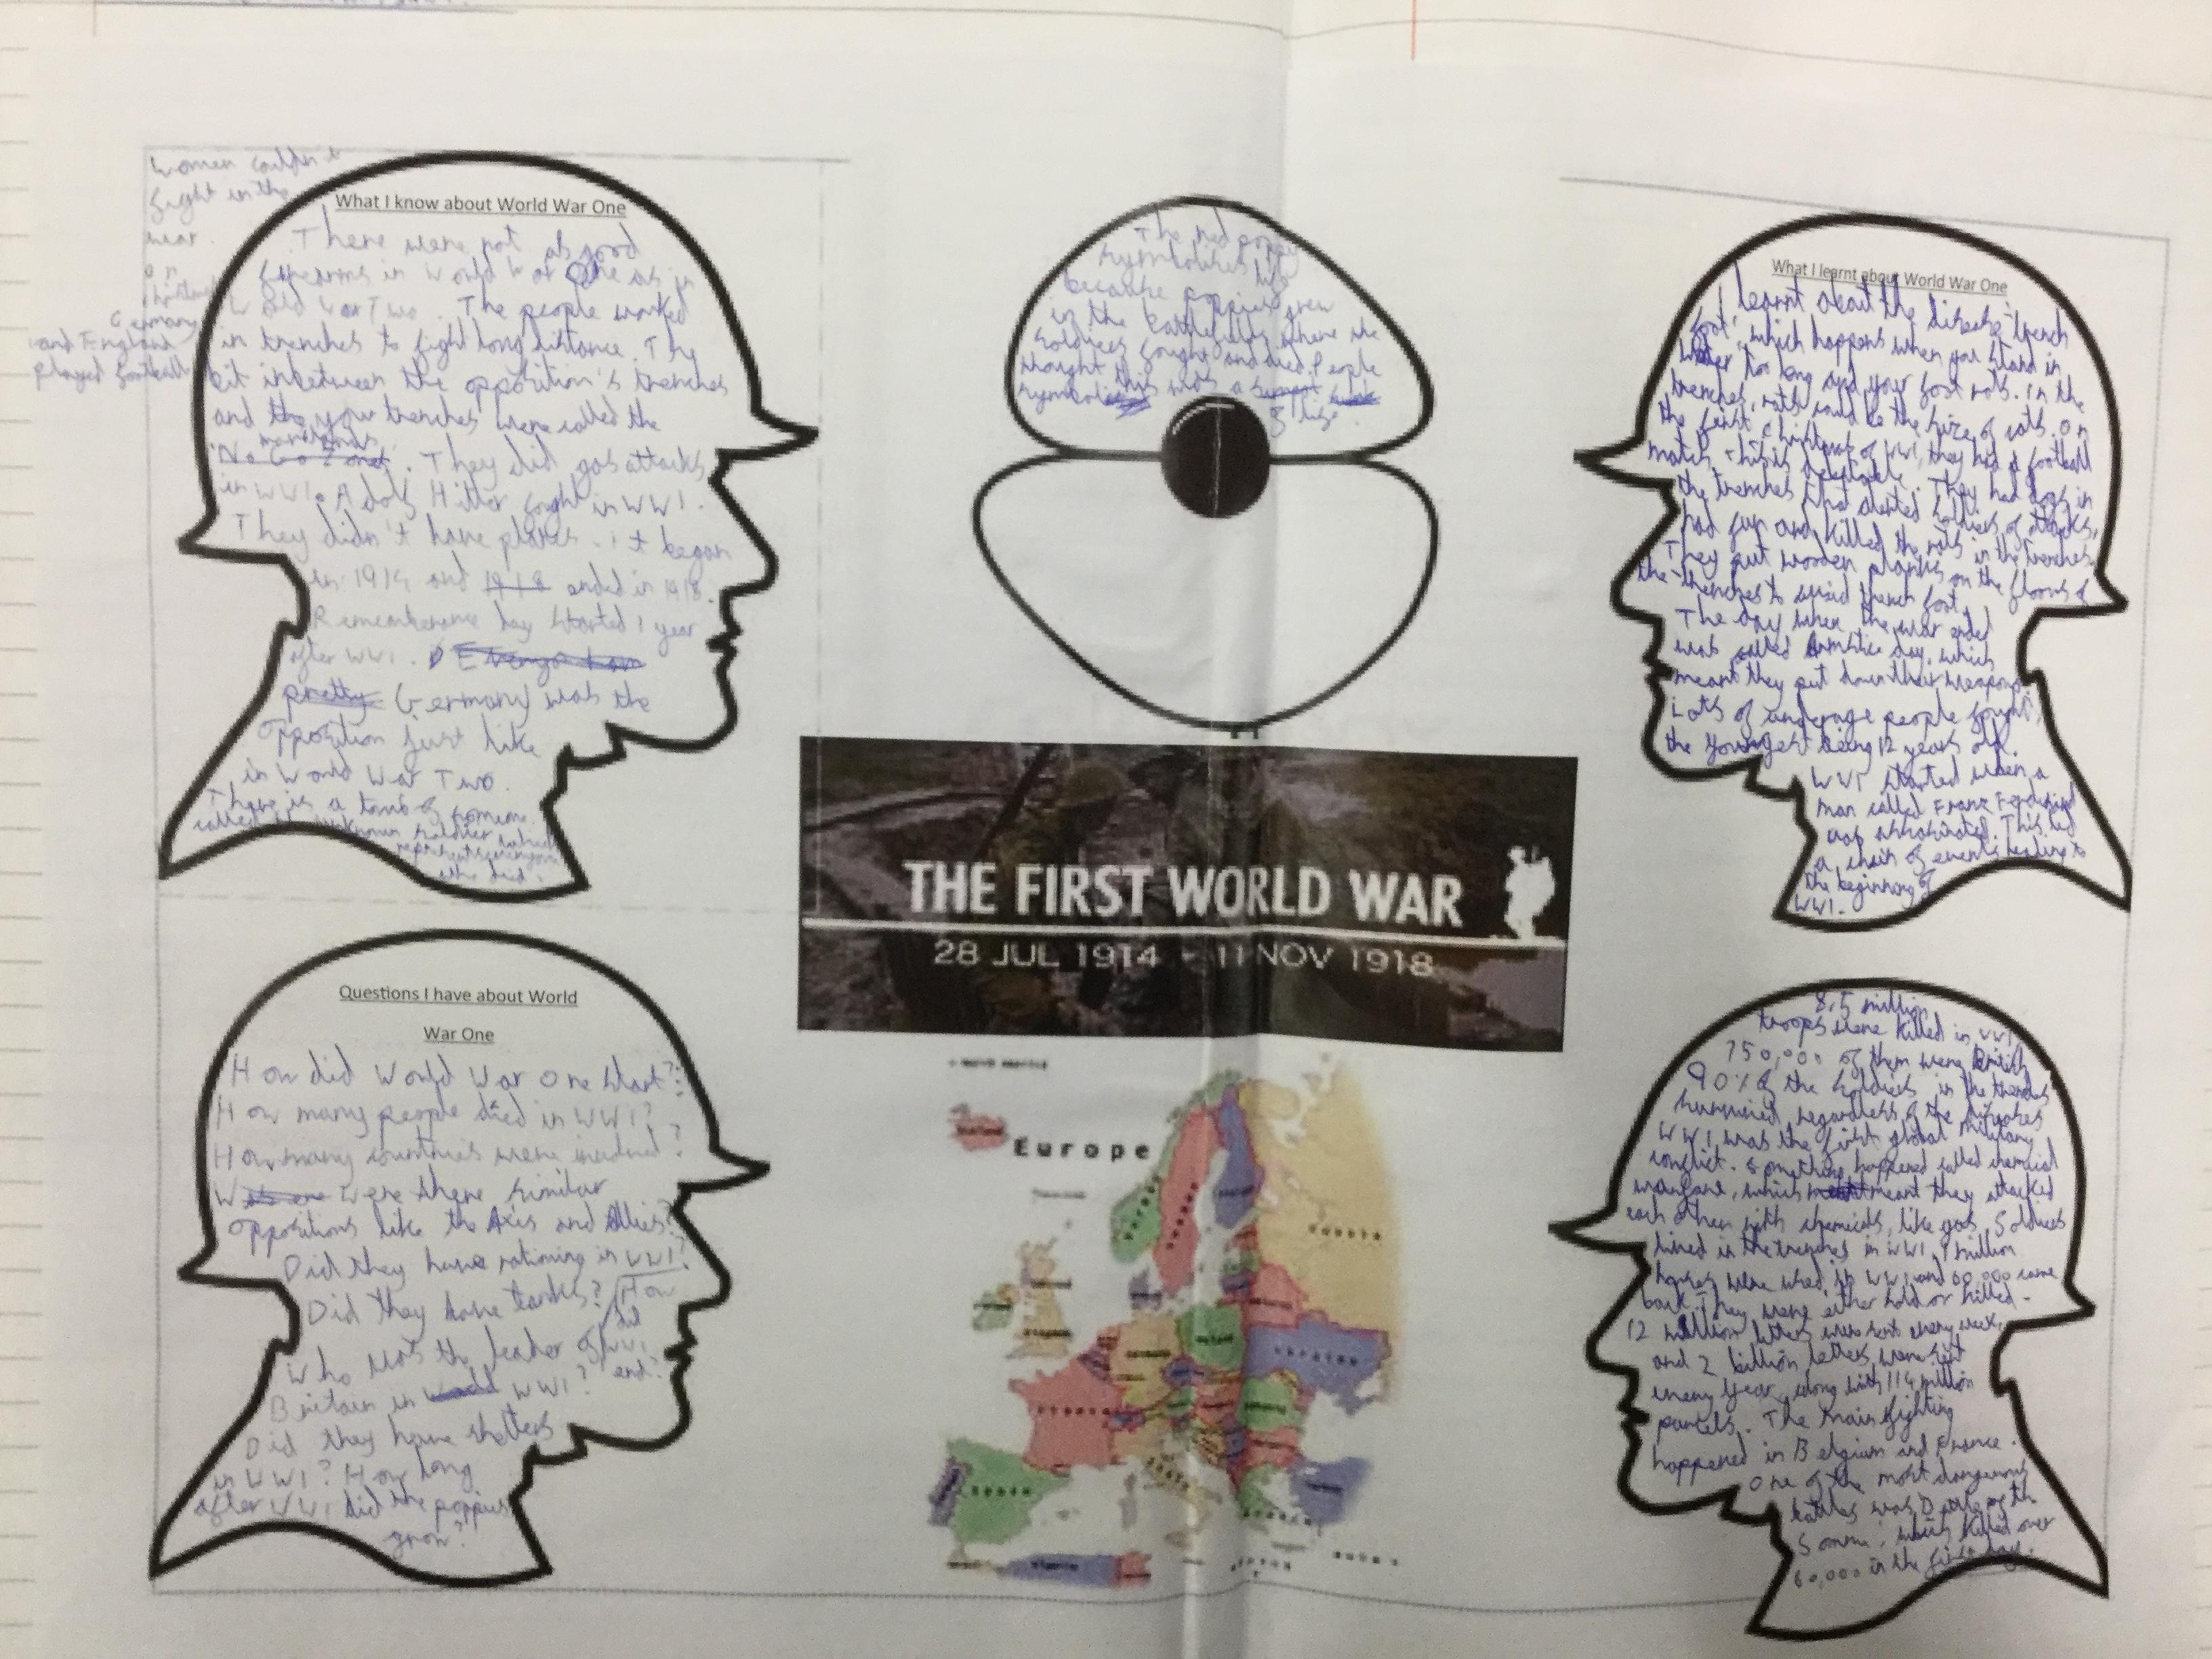 Women couldn't
fight in the
war.
on
Christmas
Germany
and England
played football
What I know about World War One
There were not as good
firearms in World War One as in
World War Two. The people worked
in trenches to fight long distance. The
bit inbetween the opposition's trenches
and the your trenches were called the
man lands
No Go Zones. They did gas attacks
in WW1. Adolf Hitler fought in WW1.
They didn't have planes. it began
in 1914 and 1918 ended in 1918.
Rememberence day started 1 year
after WW1.
pretty Germany was the
opposition just like
in World War Two.
There is a tomb of someone
called the unknown soldier which
represents everyone
who died.
Questions I have about World
War One
How did World War One start?
How many people died in WW1?
How many countries were involved?
Were there similar
oppositions like the Axis and Allies?
Did they have rationing in WW1?
Did they have tanks? How
did
WW1
end?
Who was the leader of
Britain in World WW1?
Did they have shelters
in WW1? How long
after WW1 did the poppies
grow?
The red poppy
symbolises life
because poppies grew
in the battlefields where the
soldiers fought and died. People
thought this was a
symbol
of life.
THE FIRST WORLD WAR
28 JUL 1914 - 11 NOV 1918
Europe
Russia
Ukraine
France
Spain
What I learnt about World War One
I learnt about the disease 'trench
foot', which happens when you stand in
water too long and your foot rots. In the
trenches, rats could be the size of cats. On
the first Christmas of WW1, they had a football
match. This is
They had dogs in
the trenches that alerted soldiers of attacks,
had fun and killed the rats in the trenches.
They put wooden planks on the floors of
the trenches to avoid trench foot.
The day when the war ended
was called Armistice day, which
meant they put down their weapons.
Lots of underage people fought,
the youngest being 12 years old.
WW1 started when a
man called Franz Ferdinand
was assassinated. This led
a chain of events leading to
the beginning of
WW1.
8.5 million
troops were killed in WW1
750,000 of them were British
90% of the soldiers in the trenches
survived, regardless of the diseases
WW1 was the first global military
conflict. Something happened called chemical
warfare, which meant they attacked
each other with chemicals, like gas. Soldiers
lived in the trenches in WW1. 1 million
horses were used in WW1 and 60,000 came
back. They were either sold or killed.
12 million letters were sent every week,
and 2 billion letters were sent
every year, along with 114 million
parcels. The main fighting
happened in Belgium and France.
One of the most dangerous
battles was Battle of the
Somme, which killed over
60,000 in the first day.